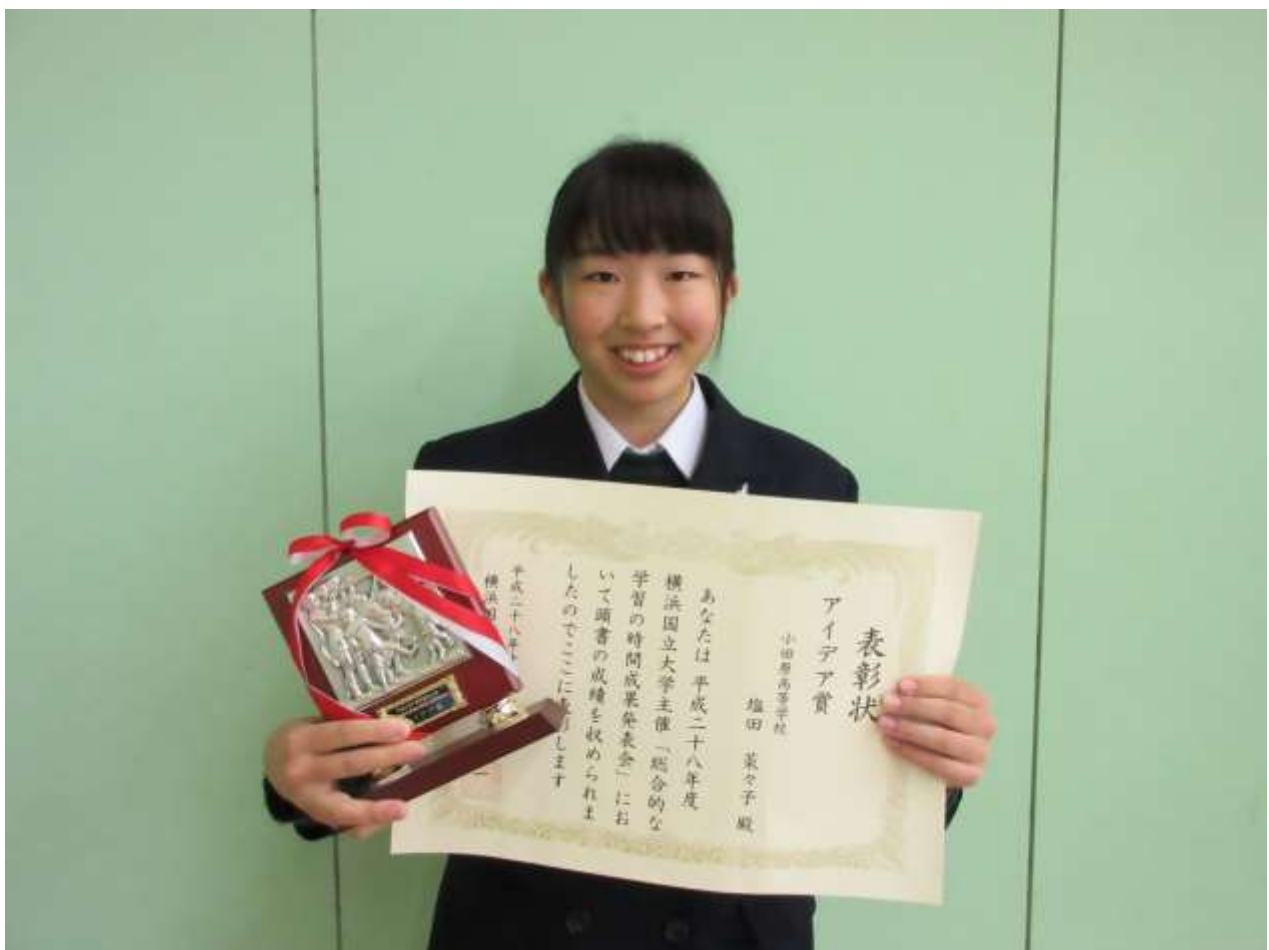 表彰状
アイデア賞
小田原高等学校
塩田 菜々子 殿
あなたは 平成二十八年度
横浜国立大学主催「総合的な
学習の時間成果発表会」にお
いて頭書の成績を収められま
したのでここに表彰します
平成二十八年十
横浜国